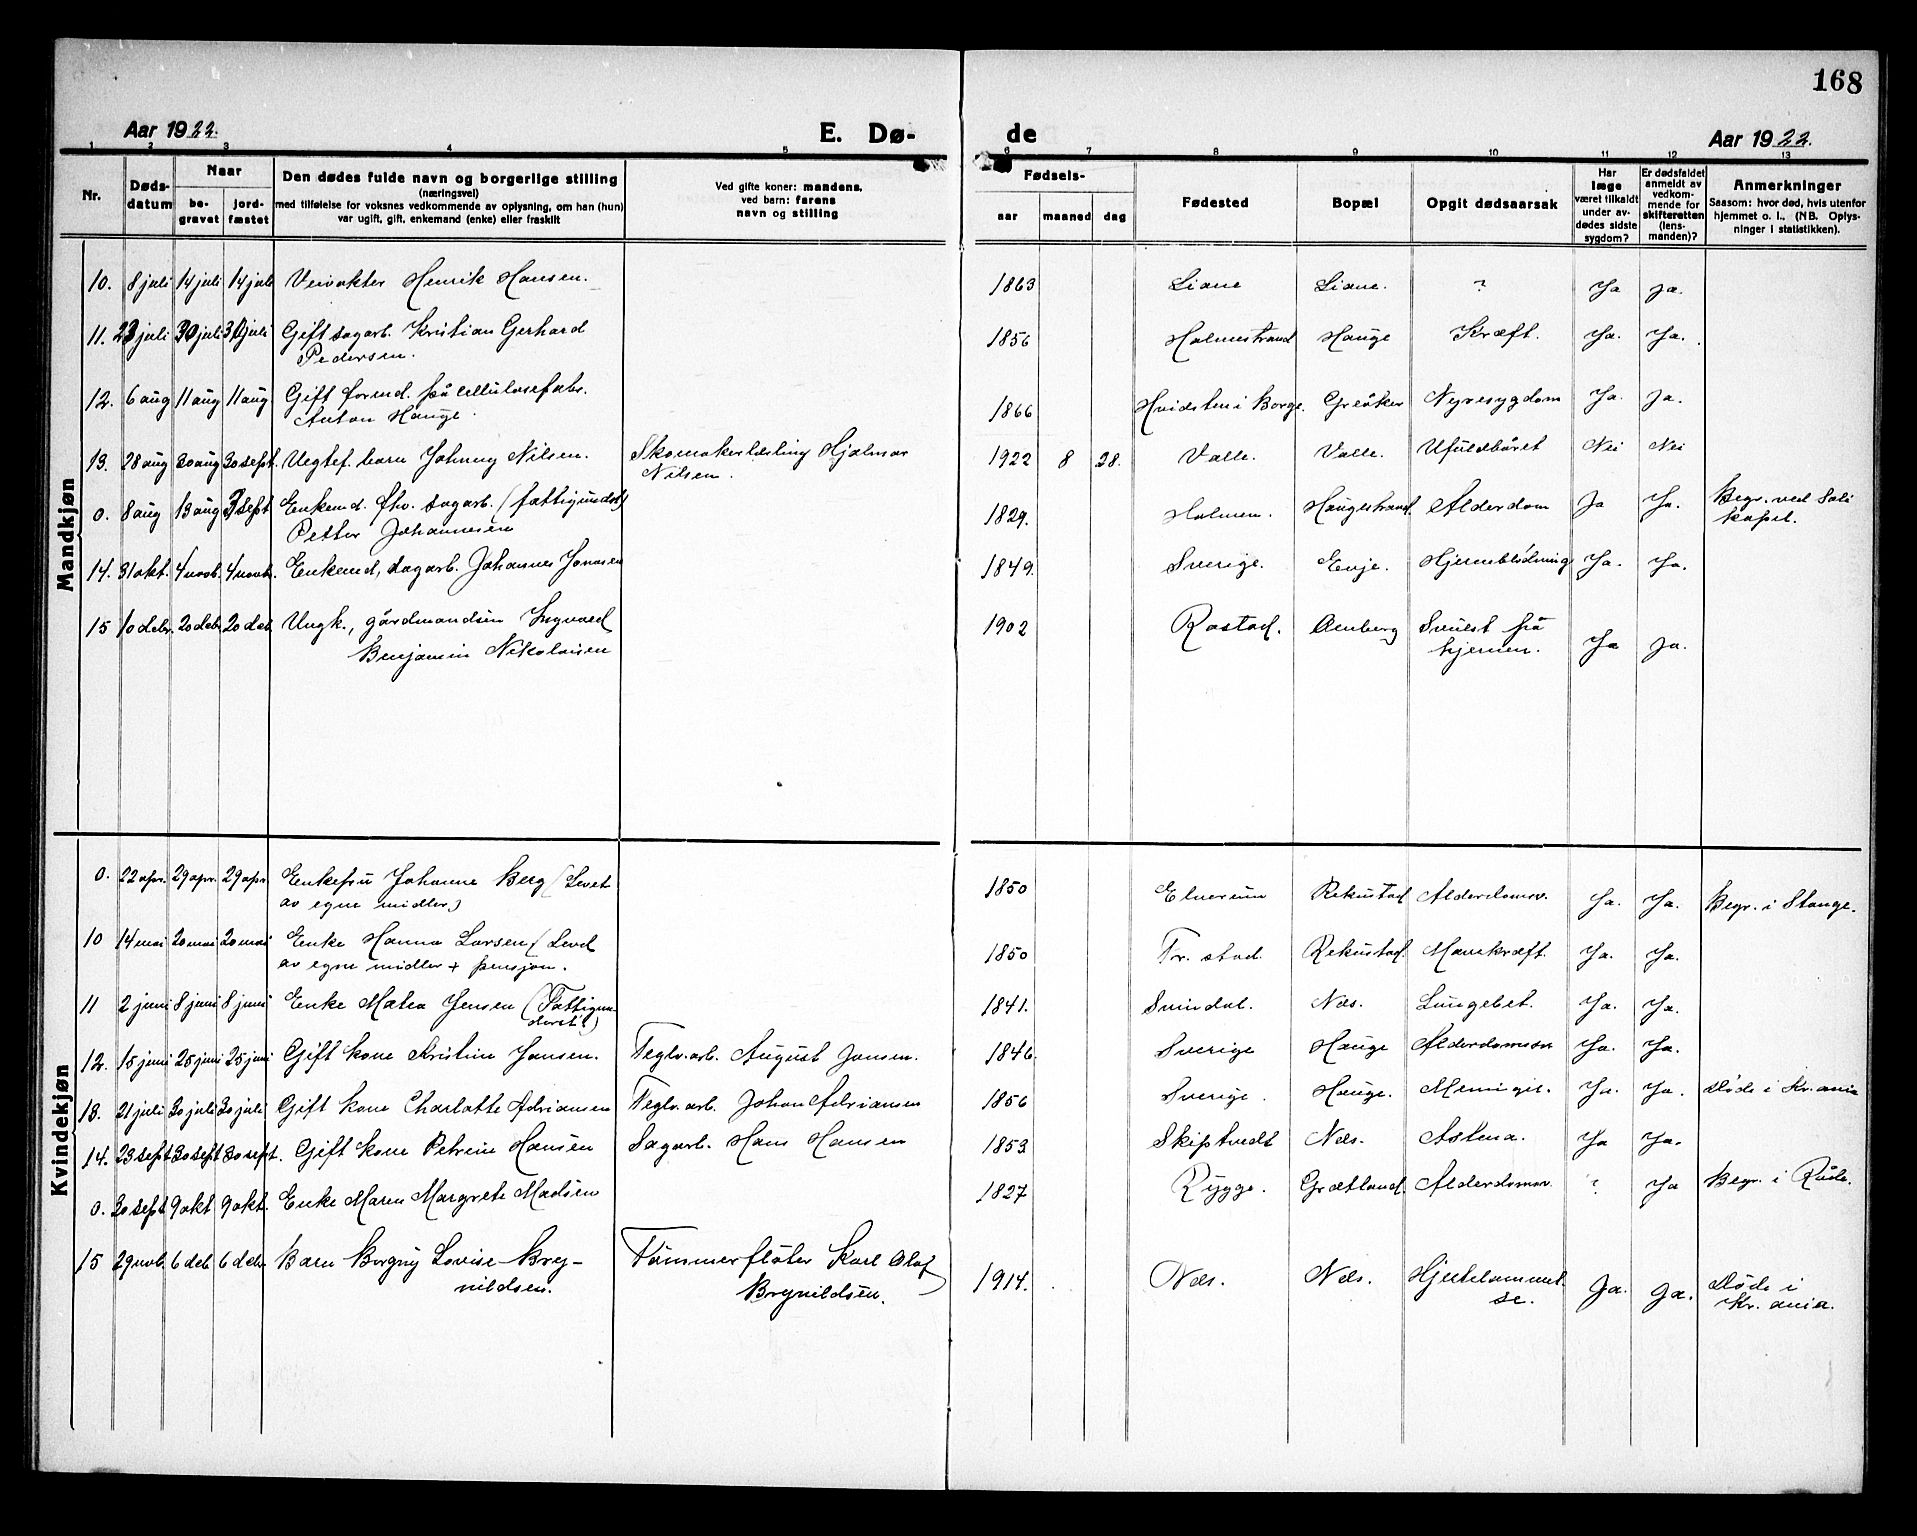 168
Aar 1922.
E. Dø-
de
Aar 1922.
1 2 3 4 5 6 7 8 9 10 11 12 13
Nr.
Døds-
datum
Naar
be-
gravet
jord-
fæstet
Den dødes fulde navn og borgerlige stilling
(næringsvei)
med tilføielse for voksnes vedkommende av oplysning, om han (hun)
var ugift, gift, enkemand (enke) eller fraskilt
Ved gifte koner: mandens,
ved barn: farens
navn og stilling
Fødsels-
aar maaned dag
Fødested
Bopæl
Opgit dødsaarsak
Har
læge
været tilkaldt
under av-
dødes sidste
sygdom?
Er dødsfaldet
anmeldt av
vedkom-
mende for
skifteretten
(lens-
manden)?
Anmerkninger
Saasom: hvor død, hvis utenfor
hjemmet o. l.. (NB. Oplys-
ninger i statistikken).
Mandkjøn
10. 8 juli 14 juli 14 juli Veivokter Henrik Hansen. 1863 Liane Liane. ? Ja Ja.
11. 23 juli 30 juli 30 juli Gift sagarb. Kristian Gerhard 1856 Holmestrand Hauge Kræft. Ja. Ja.
Pedersen.
12. 6 aug 11 aug 11 aug Gift formd. på cellulosefabr. 1866 Hvidsten i Borge. Greåker Nyresygdom Ja. Ja.
Anton Hauge.
13. 28 aug 30 aug 30 sept. Uegtef. barn Johnny Nilsen. Skomakerlærling Hjalmar 1922 8 28. Valle. Valle. Ufuldbåret Nei Nei
Nilsen.
0. 8 aug 13 aug 3 sept Enkemd. fhv. sagarb. (fattigunderst) 1829. Holmen. Haugestrand. Alderdom Ja Ja. Begr. ved Soli
Petter Johannesen kapel.
14. 31 okt. 4 novb. 4 novb. Enkemd, sagarb. Johannes Jonasen 1849. Sverige. Enje. Hjerneblødning Ja. Ja.
15 10 debr. 20 debr 20 deb Ungk., gårdmandsøn Ingvald 1902 Rostad. Amberg Svulst på
Benjamin Nikolaisen hjernen. Ja Ja.
Kvindekjøn
0. 22 apr. 29 apr. 29 apr. Enkefru Johanne Berg (Levet 1850 Elverum Rekustad Alderdomsv. Ja. Ja. Begr. i Stange.
av egne midler)
10 14 mai 20 mai 20 mai Enke Hanna Larsen (Leved 1850 Tr. stad. Rekustad. Mavekræft. Ja. Ja.
av egne midler + pensjon.
11 2 juni 8 juni 8 juni Enke Matea Jensen (Fattigun- 1841. Svindal. Næs. Lungebet. Ja. Ja.
derst.)
12. 15 juni 25 juni 25 juni Gift kone Kristine Jansen. Teglv.arb. August Jansen. 1846. Sverige Hauge Alderdomssv Ja. Ja.
13. 21 juli 30 juli 30 juli Gift kone Charlotte Adriansen Teglv.arb. Johan Adriansen 1856 Sverige. Hauge. Meningit. Ja. Ja. Døde i Kr.ania
14. 23 sept 30 sept 30 sept. Gift kone Petrine Hansen Sagarb. Hans Hansen 1853 Skiptvedt Næs. Astma. Ja Ja.
0. 30 sept 9 okt 9 okt. Enke Maren Margrete Madsen 1827 Rygge. Grætland. Alderdomsv. ? Ja Begr. i Råde.
15 29 nob. 6 deb 6 debr Barn Borgny Lovise Bry- Tømmerfløter Karl Olaf 1914. Næs. Næs. Hjertelammel- Ja. Ja. Døde i
nildsen. Brynildsen. se. Kr. ania.